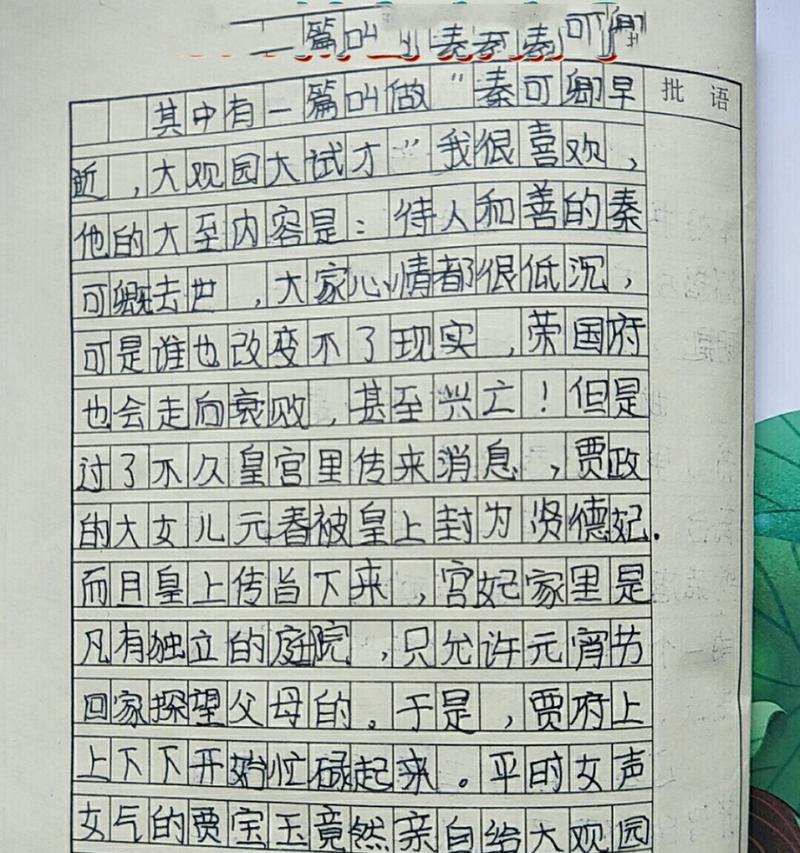 一篇叫
其中有一篇叫做“秦可卿早 批语
逝，大观园大试才”我很喜欢，
他的大至内容是：待人和善的秦
可卿去世，大家心情都很低沉，
可是谁也改变不了现实，荣国府
也会走向衰败，甚至兴亡！但是
过了不久皇宫里传来消息，贾政
的大女儿元春被皇上封为贤德妃.
而且皇上传旨下来，宫妃家里是
凡有独立的庭院，只允许元宵节
回家探望父母的。于是，贾府上
上下下开始忙碌起来。平时女声
女气的贾宝玉竟然亲自给大观园